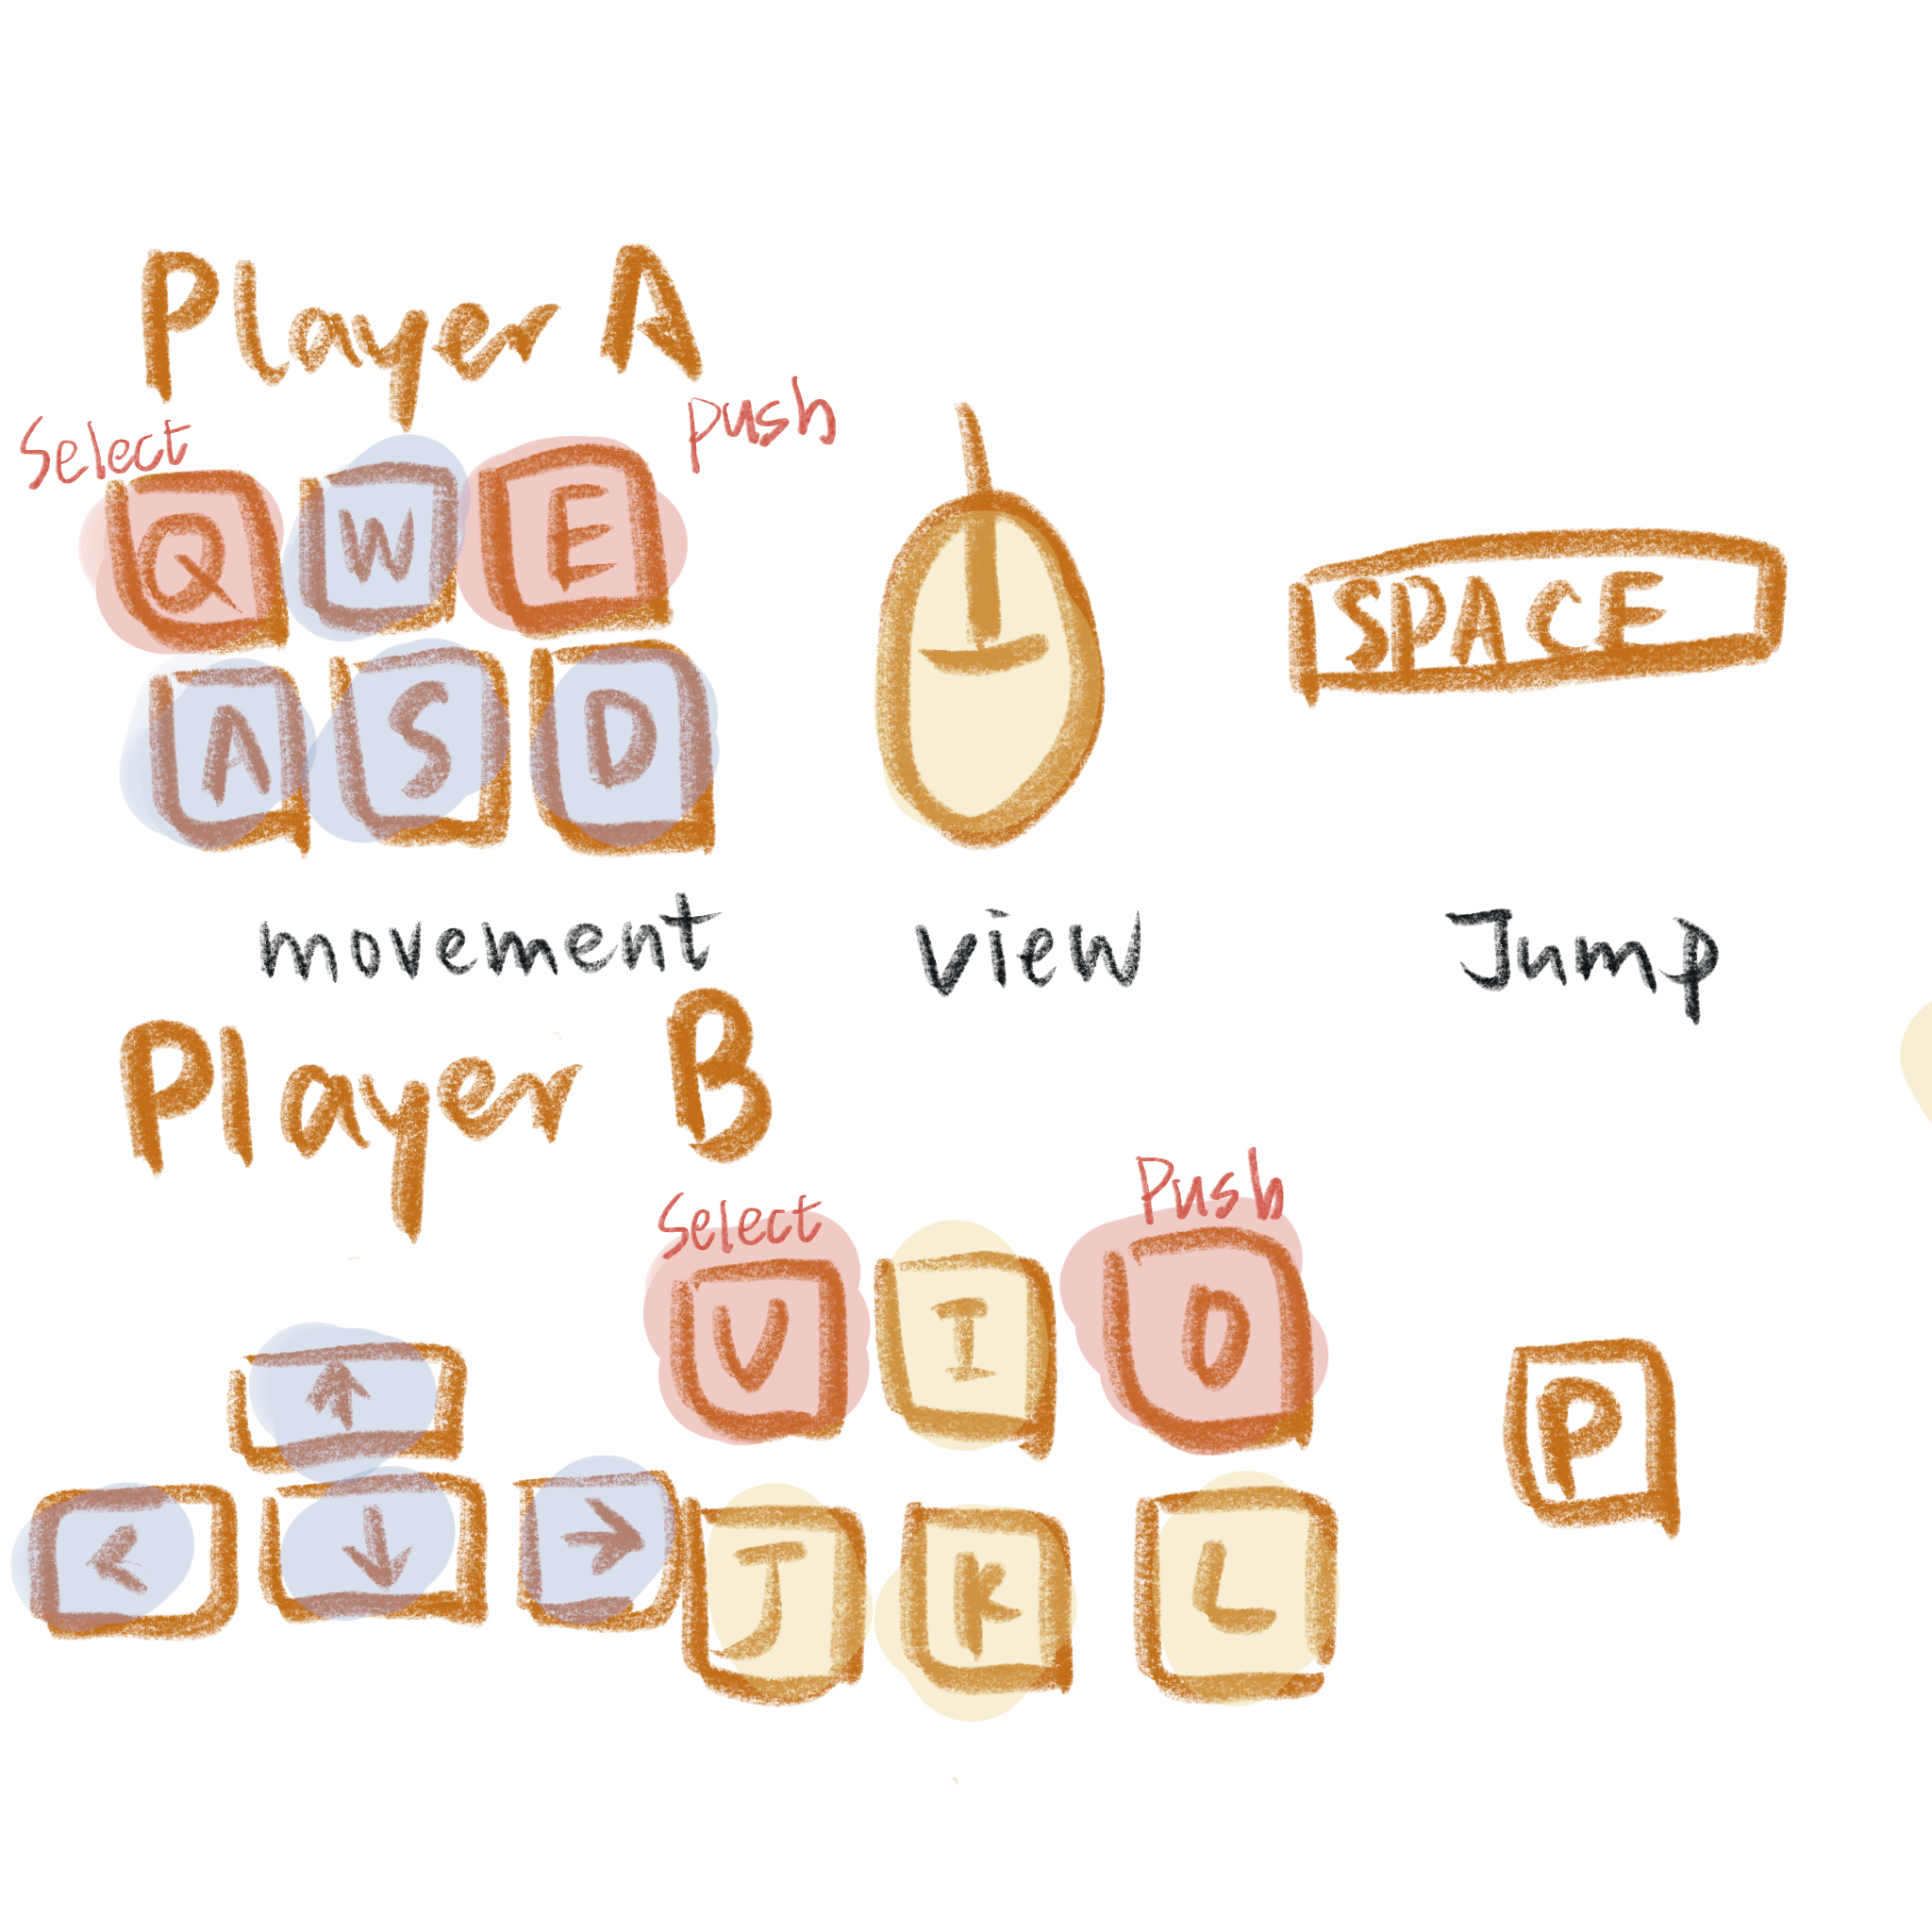 Player A
Select push
Q W E
A S D
SPACE
movement view Jump
Player B
Select Push
U I O
↑
P
< ↓ →
J K L